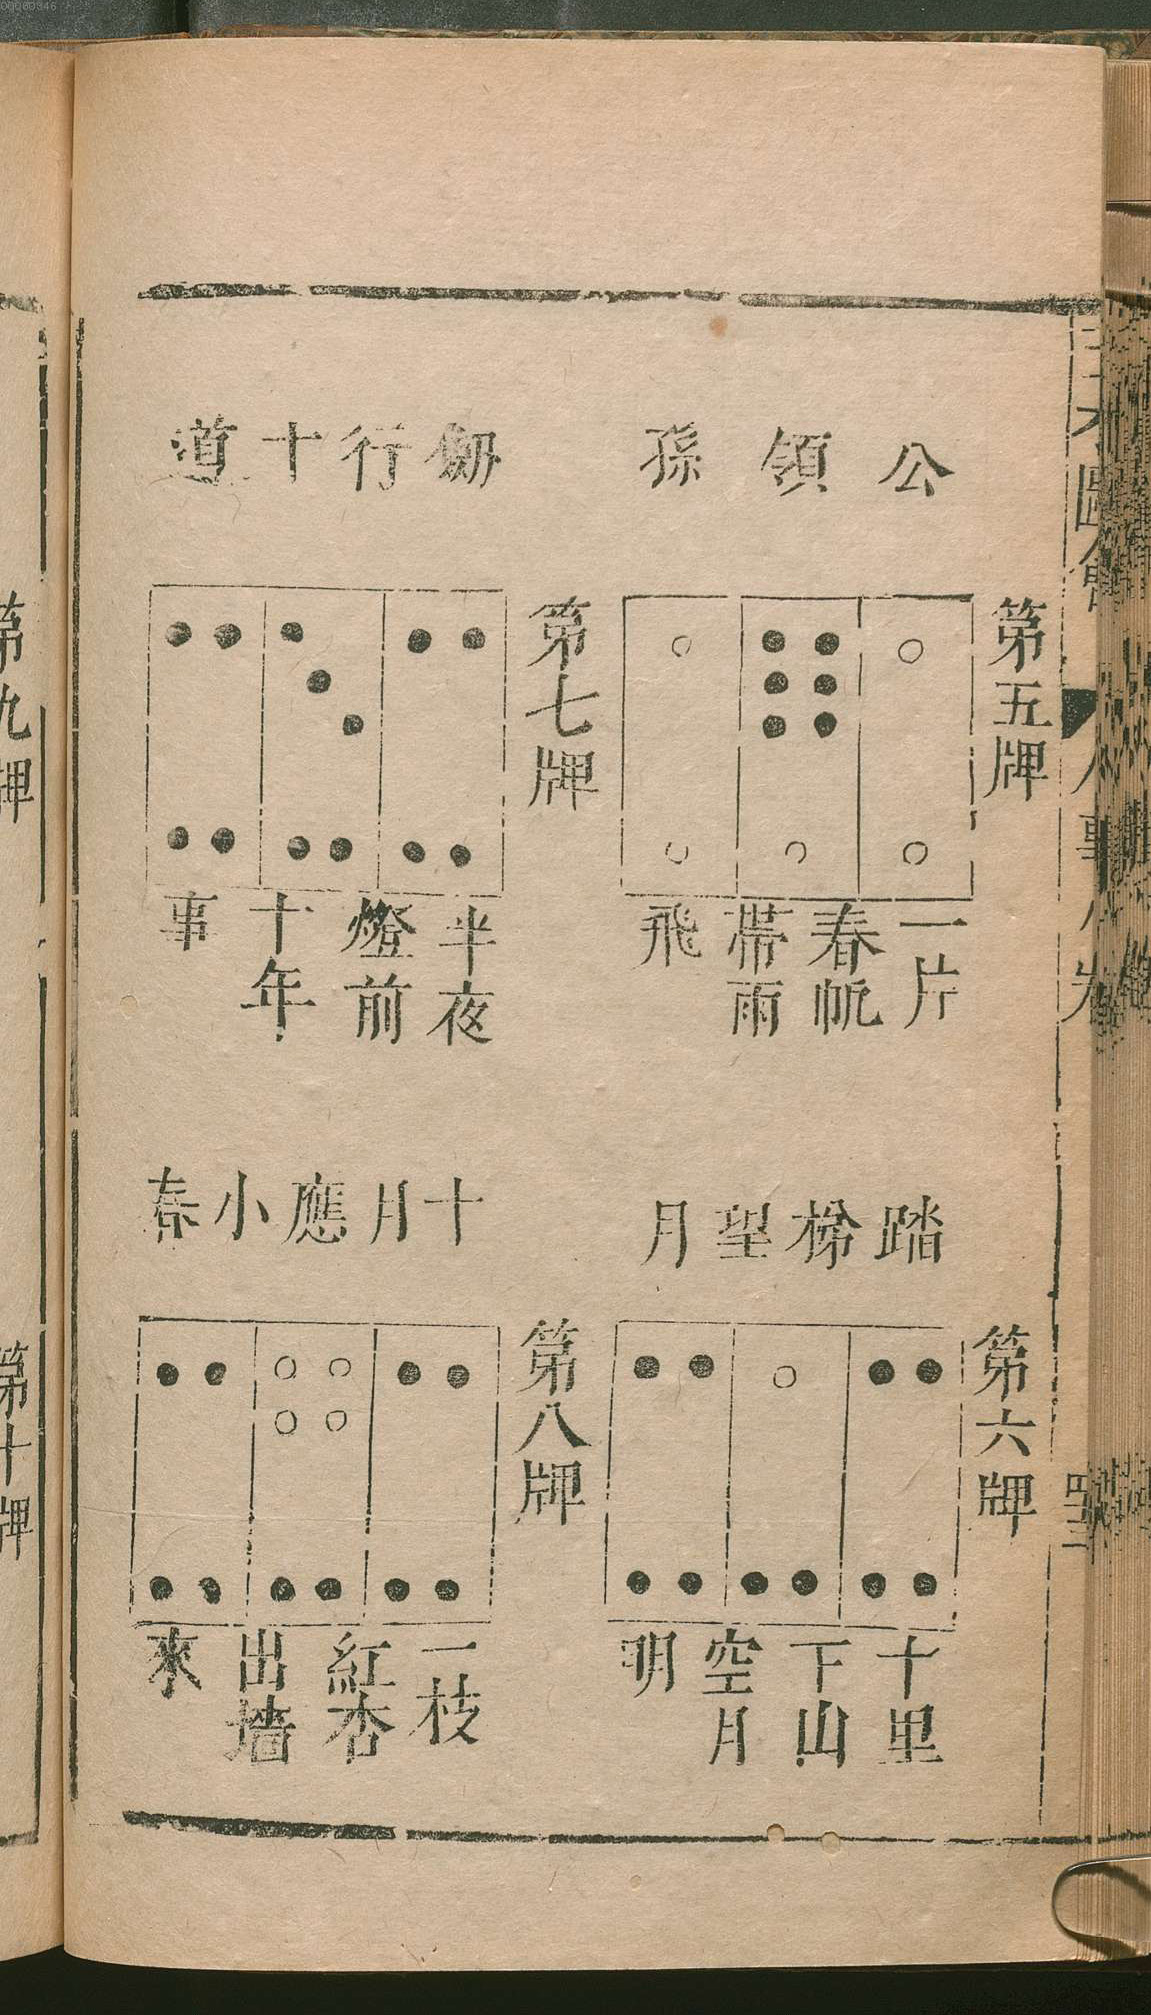 第五牌
公領孫
一片
春帆
帶雨
飛
第六牌
踏梯望月
十里
下山
空月
明
第七牌
劒行十道
半夜
燈前
十年
事
第八牌
十月應小春
一枝
紅杏
出墻
來
第九牌
第十牌
00000346